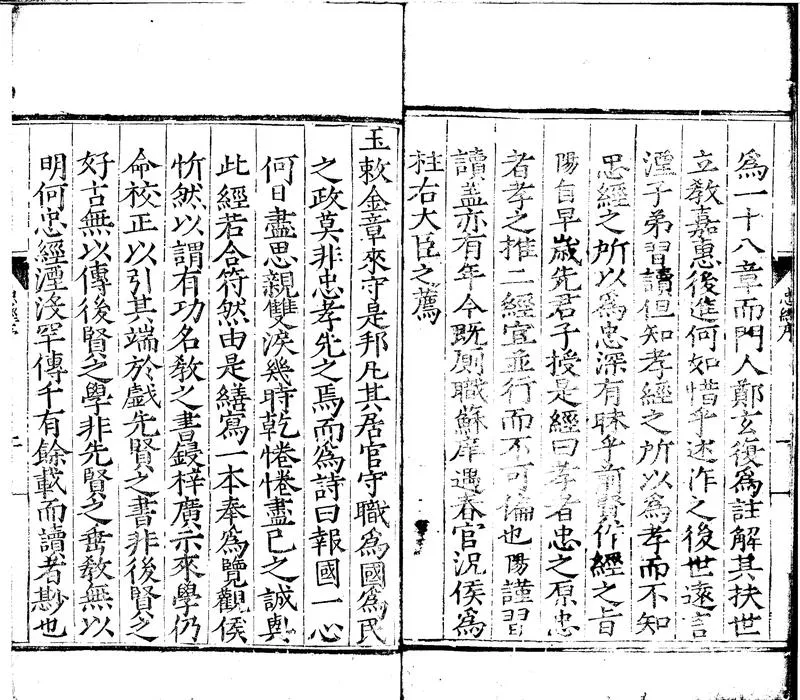 為一十八章而門人鄭玄復為註解其扶世
立敎嘉惠後進何如惜乎述作之後世遠言
湮子弟習讀但知孝經之所以為孝而不知
忠經之所以為忠深有昧乎前賢作經之旨
陽自早歲先君子授是經曰孝者忠之原忠
者孝之推二經宜並行而不可偏也陽謹習
讀蓋亦有年今既厠職蘇庠遇春官況侯為
柱右大臣之薦
玉敕金章來守是邦凡其居官守職為國為民
之政莫非忠孝先之焉而為詩曰報國一心
何日盡思親雙淚幾時乾惓惓盡己之誠與
此經若合符然由是繕寫一本奉為覽觀侯
忻然以謂有功名敎之書鋟梓廣示來學仍
命校正以引其端於戲先賢之書非後賢之
好古無以傳後賢之學非先賢之垂敎無以
明何忠經湮沒罕傳千有餘載而讀者尠也
忠經序